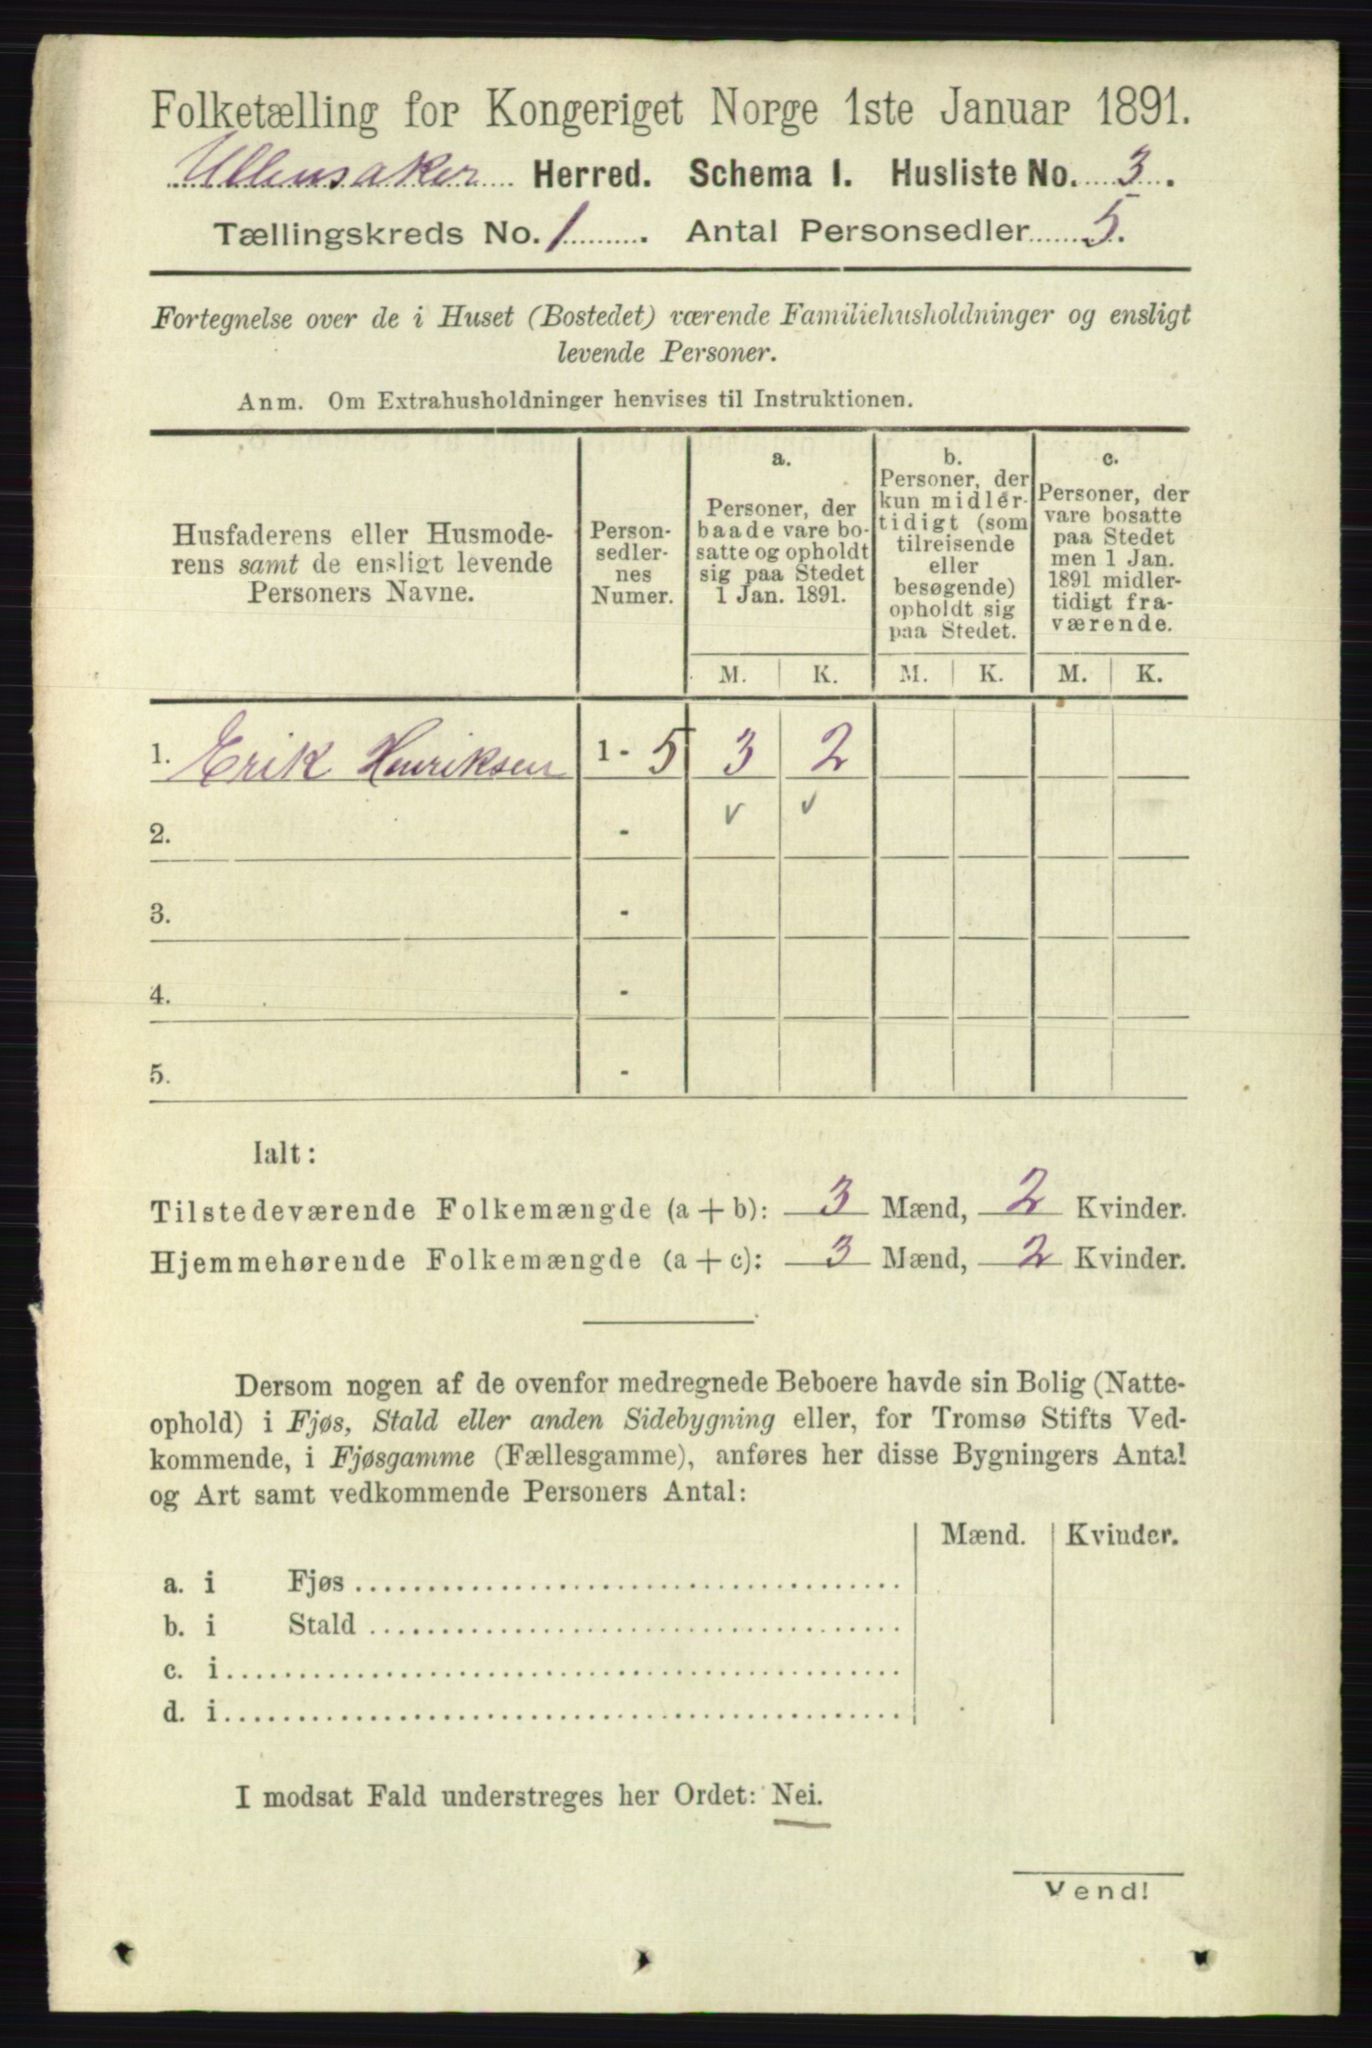 Folketælling for Kongeriget Norge 1ste Januar 1891.
Ullensaker Herred. Schema I. Husliste No. 3.
Tællingskreds No. 1. Antal Personsedler 5.
Fortegnelse over de i Huset (Bostedet) værende Familiehusholdninger og ensligt
levende Personer.
Anm. Om Extrahusholdninger henvises til Instruktionen.
Husfaderens eller Husmode-
rens samt de ensligt levende
Personers Navne.
Person-
sedler-
nes
Numer.
a.
Personer, der
baade vare bo-
satte og opholdt
sig paa Stedet
1 Jan. 1891.
b.
Personer, der
kun midler-
tidigt (som
tilreisende
eller
besøgende)
opholdt sig
paa Stedet.
c.
Personer, der
vare bosatte
paa Stedet
men 1 Jan.
1891 midler-
tidigt fra-
værende.
M. K. M. K. M. K.
1. Erik Henriksen 1 - 5 3 2
2. - v v
3. -
4. -
5. -
Ialt:
Tilstedeværende Folkemængde (a + b): 3 Mænd, 2 Kvinder.
Hjemmehørende Folkemængde (a + c): 3 Mænd, 2 Kvinder.
Dersom nogen af de ovenfor medregnede Beboere havde sin Bolig (Natte-
ophold) i Fjøs, Stald eller anden Sidebygning eller, for Tromsø Stifts Ved-
kommende, i Fjøsgamme (Fællesgamme), anføres her disse Bygningers Antal
og Art samt vedkommende Personers Antal:
Mænd. Kvinder.
a. i Fjøs
b. i Stald
c. i
d. i
I modsat Fald understreges her Ordet: Nei.
Vend!